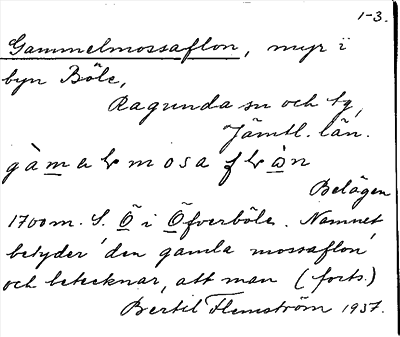 1-3.
Gammelmossaflon, myr i
byn Böle,
Ragunda sn och tg,
Jämtl. län.
Belägen
1700 m. S. Ö i Öfverböle. Namnet
betyder 'den gamla mossaflon'
och betecknar, att man (forts.)
Bertil Flemström 1937.